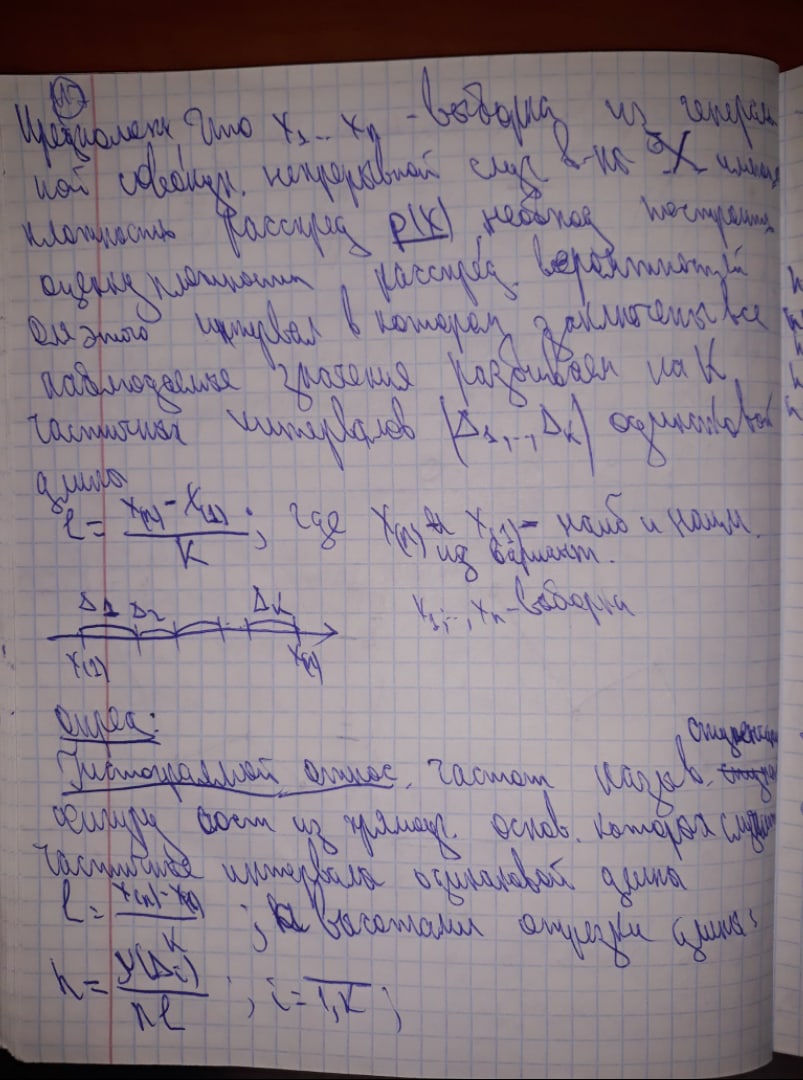 17
Предположим что x₁... xₙ - выборка из генерал
ной совокуп. непрерывной случ в-ны X имеющ
плотность распред p(x) необход построить
оценку плотности распред. вероятностей
Для этого интервал в котором заключены все
наблюдаемые значения разбиваем на K
частичных интервалов (Δ₁,..,Δₖ) одинаковой
длины
l = (x₍ₙ₎ - x₍₁₎) / K ; где x₍ₙ₎ и x₍₁₎ - наиб и наим.
из вариант.
Δ₁ Δ₂ Δₖ x₁,.., xₙ - выборка
x₍₁₎ x₍ₙ₎
Опред:
Гистограммой относ. частот назыв. ступенчат
фигуру сост из прямоуг. основ. которой служит
частичные интервалы одинаковой длины
l = (x₍ₙ₎ - x₍₁₎) / K ; а высотами отрезки длины:
h = ν(Δᵢ) / nl ; i = 1,K ;